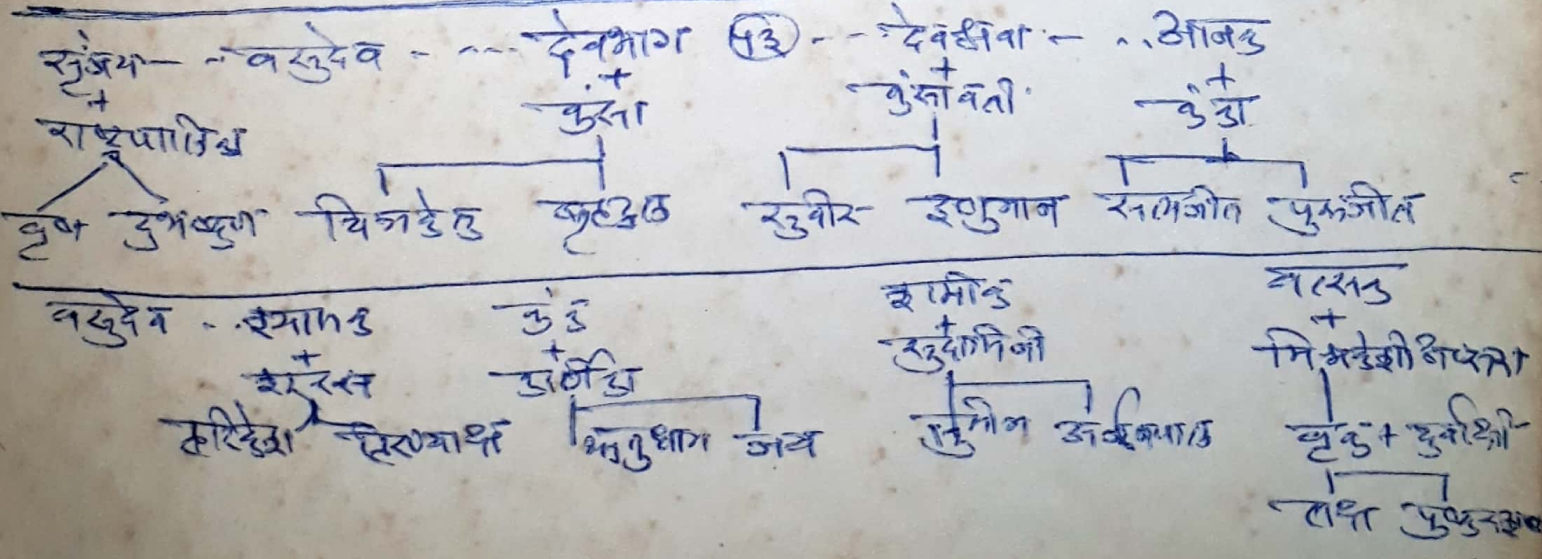 सृंजय - -- वसुदेव - --- देवभाग (५३) -- देवश्रवा - -- आनक
+ + + +
राष्ट्रपालिका कंसा कंसावती कंका
वृष दुर्मर्षण चित्रकेतु बृहद्बल सुवीर इषुमान सत्यजीत पुरुजीत
वसुदेव -- श्यामक कंक शमीक वत्सक
+ + + +
शूरसेन कर्णिका सुदामिनी मिश्रकेशी अप्सरा
हरिकेश हिरण्याक्ष ऋतुधाम जय सुमित्र अर्जुनपाल वृक + दुर्वाक्षी
तक्ष पुष्कर